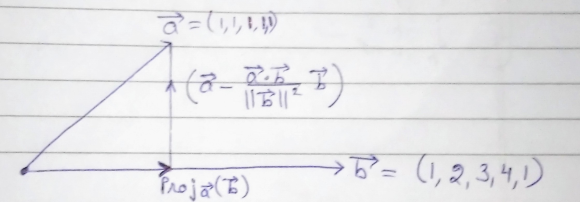 a⃗ = (1,1,1,1,1)
(a⃗ - a⃗·b⃗/||b⃗||² b⃗)
b⃗ = (1, 2, 3, 4, 1)
Proj a⃗(b⃗)